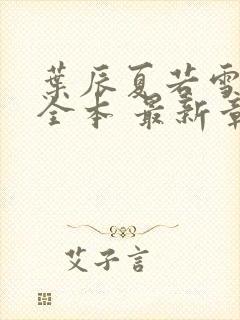 葉辰夏若雪
全本 最新章
艾子言